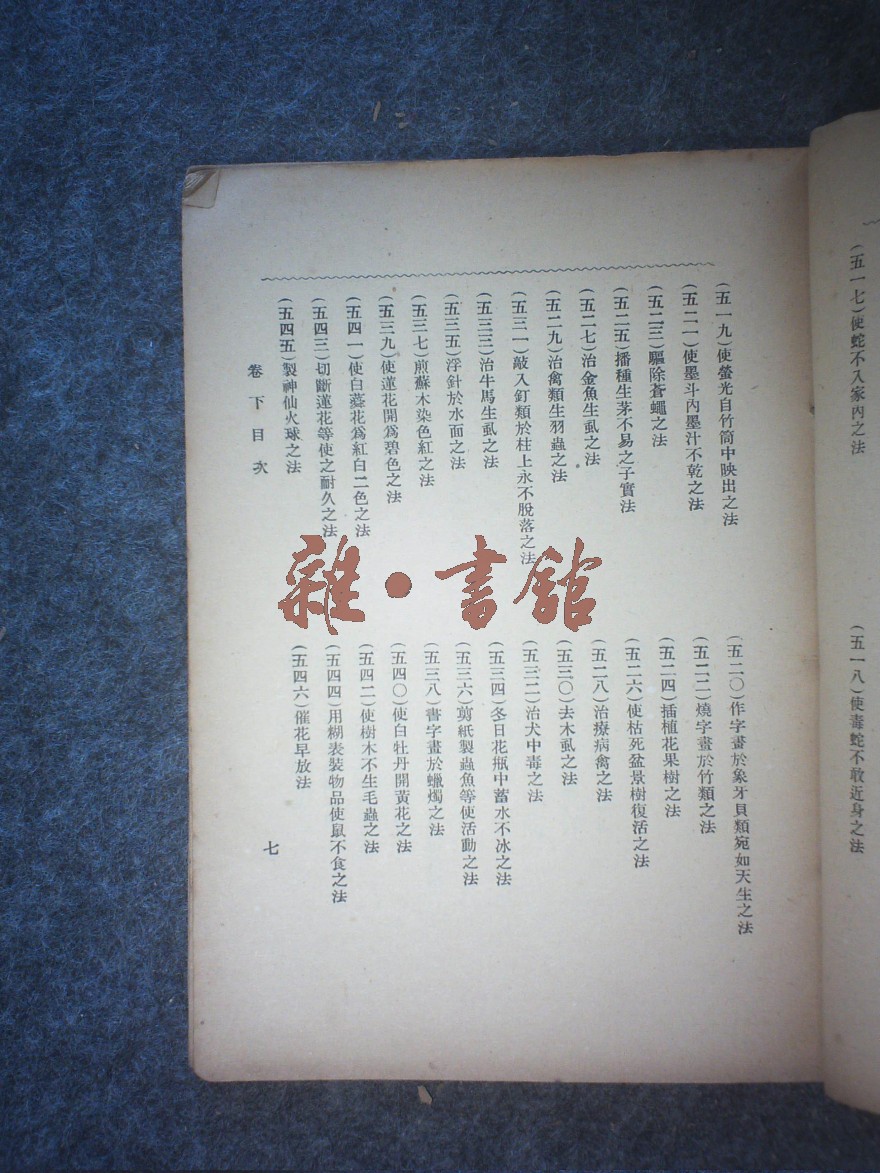 (五一七)使蛇不入家內之法
(五一八)使毒蛇不敢近身之法
(五一九)使螢光自竹筒中映出之法
(五二〇)作字畫於象牙貝類宛如天生之法
(五二一)使墨斗內墨汁不乾之法
(五二二)燒字畫於竹類之法
(五二三)驅除蒼蠅之法
(五二四)插植花果樹之法
(五二五)播種生芽不易之子實法
(五二六)使枯死盆景樹復活之法
(五二七)治金魚生虱之法
(五二八)治療病禽之法
(五二九)治禽類生羽蟲之法
(五三〇)去木虱之法
(五三一)敲入釘類於柱上永不脫落之法
(五三二)治犬中毒之法
(五三三)治牛馬生虱之法
(五三四)冬日花瓶中蓄水不冰之法
(五三五)浮針於水面之法
(五三六)剪紙製蟲魚等使活動之法
(五三七)煎蘇木染色紅之法
(五三八)書字畫於蠟燭之法
(五三九)使蓮花開爲碧色之法
(五四〇)使白牡丹開黃花之法
(五四一)使白蕣花爲紅白二色之法
(五四二)使樹木不生毛蟲之法
(五四三)切斷蓮花等使之耐久之法
(五四四)用糊表裝物品使鼠不食之法
(五四五)製神仙火球之法
(五四六)催花早放法
卷下目次
七
雜·書館